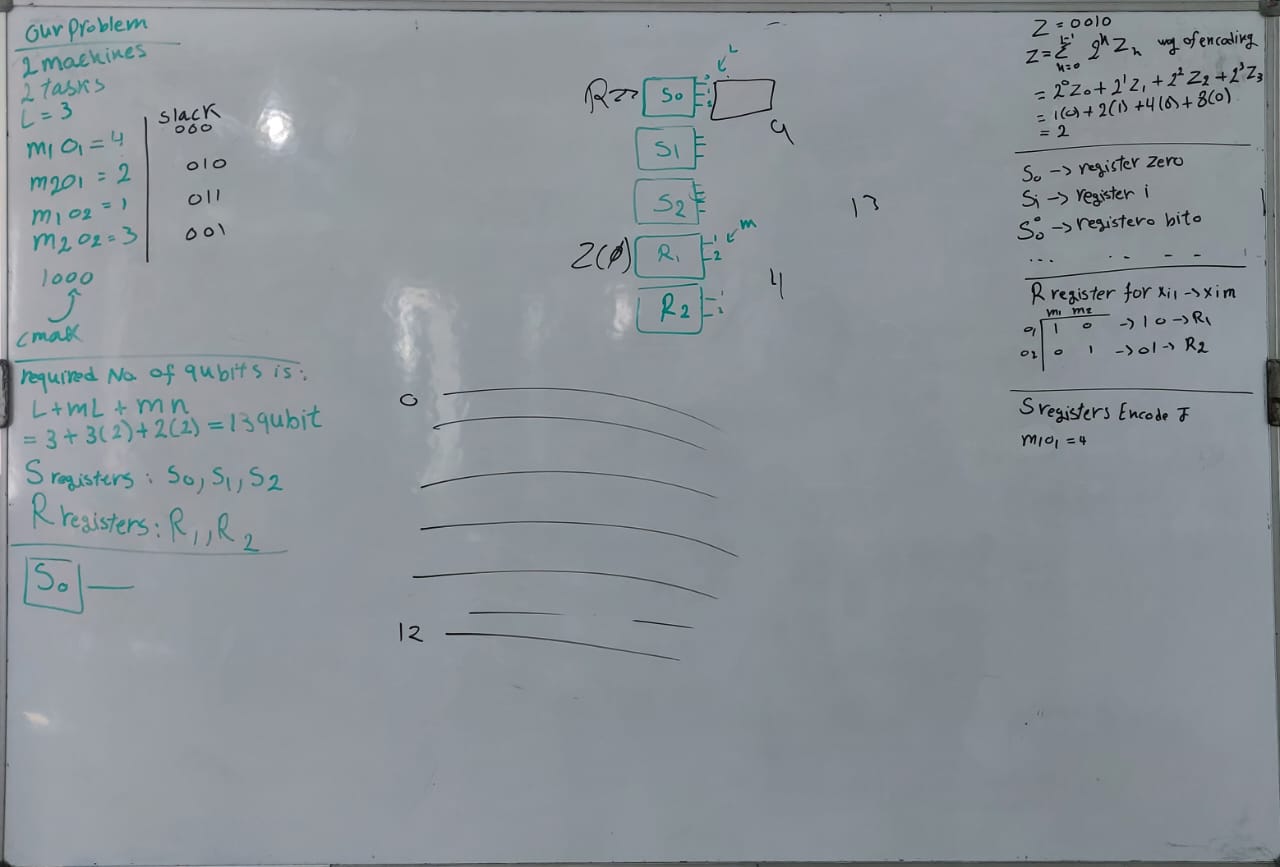 Our Problem
2 machines
2 tasks
L = 3
m1 O1 = 4
m2O1 = 2
m1 O2 = 1
m2 O2 = 3
1000
cmax
slack
000
010
011
001
required No. of qubits is:
L + mL + mn
= 3 + 3(2) + 2(2) = 13 qubit
S registers : S0, S1, S2
R registers : R1, R2
S0
L
S0
9
S1
S2
13
m
Z(∅) R1 1 2
4
R2 1
0
12
Z = 0010
Z = Σ 2^n Zn way of encoding
L-1
n=0
= 2^0 Z0 + 2^1 Z1 + 2^2 Z2 + 2^3 Z3
= 1(0) + 2(1) + 4(0) + 8(0)
= 2
S0 -> register zero
Si -> register i
S0^0 -> register0 bit0
... .. - -
R register for xi1 -> xim
m1 m2
O1 1 0 -> 10 -> R1
O2 0 1 -> 01 -> R2
S registers Encode
m1O1 = 4